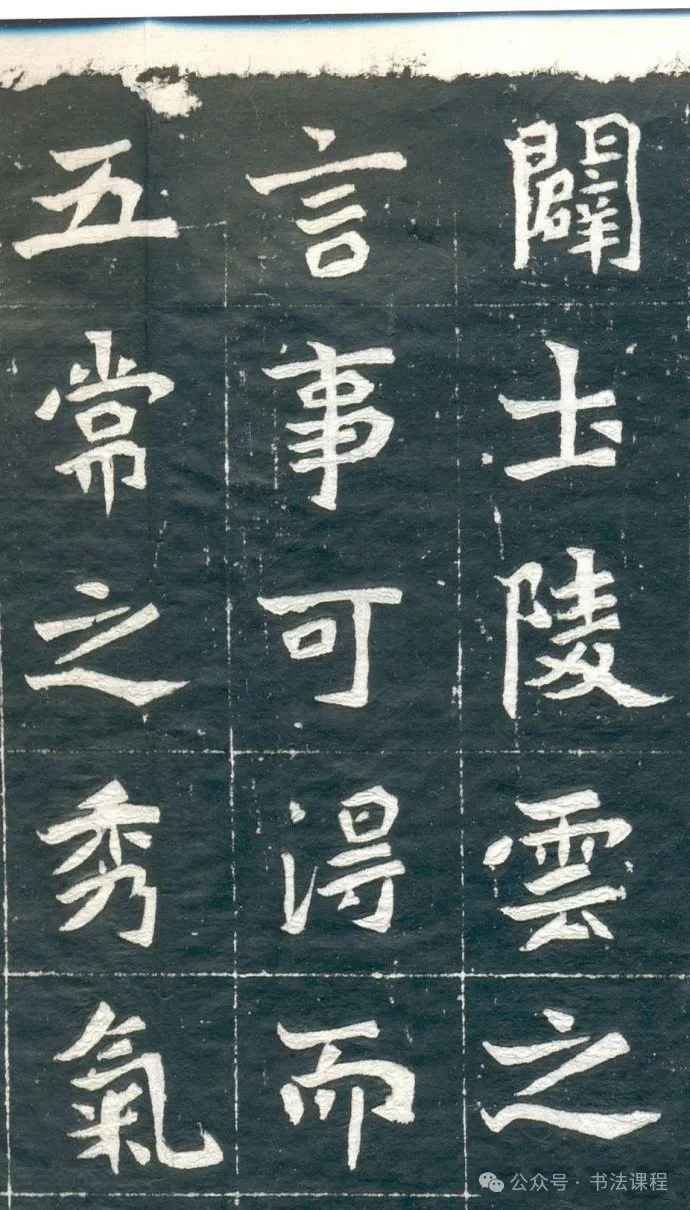 闢土陵雲之
言事可得而
五常之秀氣
公众号·书法课程